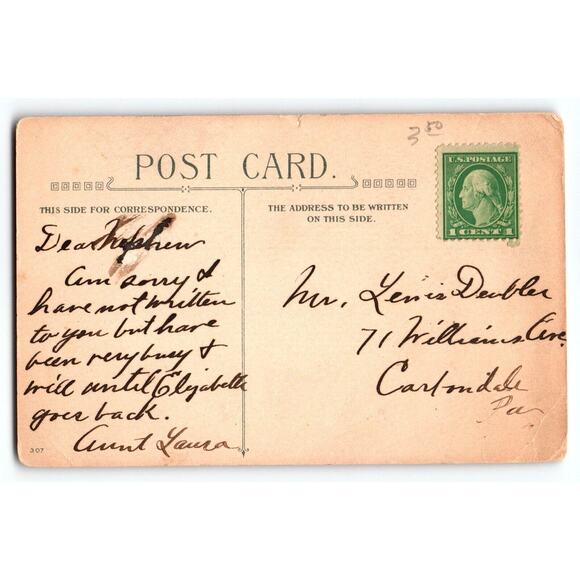 3 50
POST CARD.
U.S. POSTAGE
1 CENT 1
THIS SIDE FOR CORRESPONDENCE.
THE ADDRESS TO BE WRITTEN
ON THIS SIDE.
Dear Nephew
am sorry I
have not written
to you but have
been very busy &
will until Elizabeth
goes back.
Aunt Laura
Mr. Lewis Deubler
71 Williams Ave.
Carbondale
Pa
307